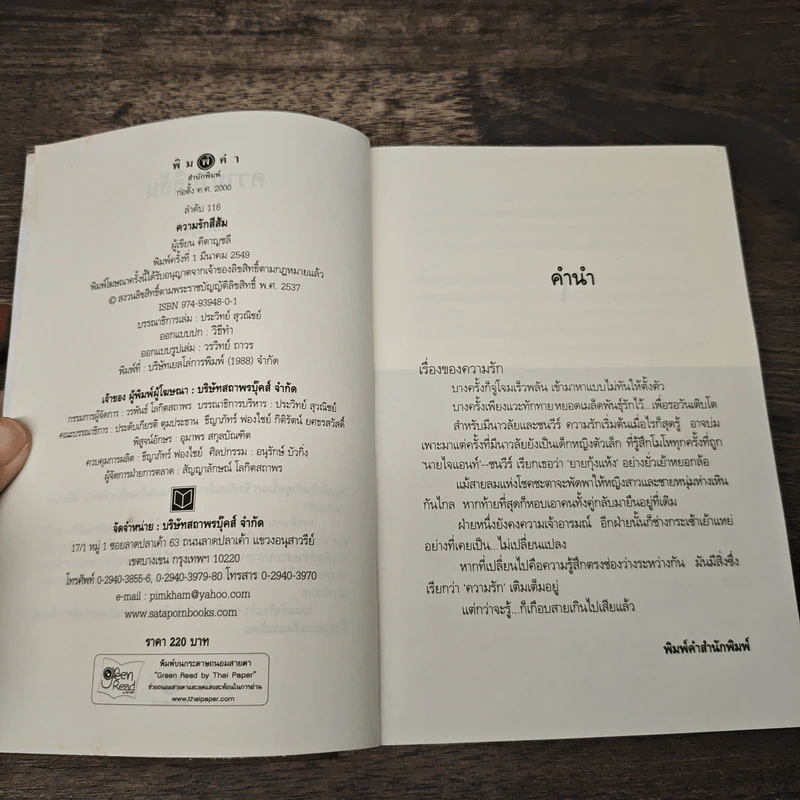 พิมพ์คำ
สำนักพิมพ์
ก่อตั้ง ค.ศ. 2000
ลำดับ 116
ความรักสีส้ม
ผู้เขียน คีตาญชลี
พิมพ์ครั้งที่ 1 มีนาคม 2549
พิมพ์โฆษณาครั้งนี้ได้รับอนุญาตจากเจ้าของลิขสิทธิ์ตามกฎหมายแล้ว
© สงวนลิขสิทธิ์ตามพระราชบัญญัติลิขสิทธิ์ พ.ศ. 2537
ISBN 974-93948-0-1
บรรณาธิการเล่ม : ประวิทย์ สุวณิชย์
ออกแบบปก : วิธีทำ
ออกแบบรูปเล่ม : วรวิทย์ ถาวร
พิมพ์ที่ : บริษัทเยลโล่การพิมพ์ (1988) จำกัด
เจ้าของ ผู้พิมพ์ผู้โฆษณา : บริษัทสถาพรบุ๊คส์ จำกัด
กรรมการผู้จัดการ : วรพันธ์ โลกิตสถาพร บรรณาธิการบริหาร : ประวิทย์ สุวณิชย์
คณะบรรณาธิการ : ประดับเกียรติ ตุมประธาน ธีญาภัทร์ ฟองไชย์ กิติรัตน์ ยศธรสวัสดิ์
พิสูจน์อักษร : อุมาพร สกุลบัณฑิต
ควบคุมการผลิต : ธีญาภัทร์ ฟองไชย์ ศิลปกรรม : อนุรักษ์ บัวกิ่ง
ผู้จัดการฝ่ายการตลาด : สัญญาลักษณ์ โลกิตสถาพร
จัดจำหน่าย : บริษัทสถาพรบุ๊คส์ จำกัด
17/1 หมู่ 1 ซอยลาดปลาเค้า 63 ถนนลาดปลาเค้า แขวงอนุสาวรีย์
เขตบางเขน กรุงเทพฯ 10220
โทรศัพท์ 0-2940-3855-6, 0-2940-3979-80 โทรสาร 0-2940-3970
e-mail : pimkham@yahoo.com
www.satapornbooks.com
ราคา 220 บาท
green Read
พิมพ์บนกระดาษถนอมสายตา
"Green Read by Thai Paper"
ช่วยถนอมสายตาและลดแสงสะท้อนในการอ่าน
www.thaipaper.com
คำนำ
เรื่องของความรัก
บางครั้งก็จู่โจมเร็วพลัน เข้ามาหาแบบไม่ทันให้ตั้งตัว
บางครั้งเพียงแวะทักทายหยอดเมล็ดพันธุ์รักไว้...เพื่อรอวันเติบโต
สำหรับมีนาวลัยและชนวีร์ ความรักเริ่มต้นเมื่อไรก็สุดรู้ อาจบ่ม
เพาะมาแต่ครั้งที่มีนาวลัยยังเป็นเด็กหญิงตัวเล็ก ที่รู้สึกโมโหทุกครั้งที่ถูก
'นายไจแอนท์'--ชนวีร์ เรียกเธอว่า 'ยายกุ้งแห้ง' อย่างยั่วเย้าหยอกล้อ
แม้สายลมแห่งโชคชะตาจะพัดพาให้หญิงสาวและชายหนุ่มห่างเหิน
กันไกล หากท้ายที่สุดก็หอบเอาคนทั้งคู่กลับมายืนอยู่ที่เดิม
ฝ่ายหนึ่งยังคงความเจ้าอารมณ์ อีกฝ่ายนั้นก็ช่างกระเซ้าเย้าแหย่
อย่างที่เคยเป็น...ไม่เปลี่ยนแปลง
หากที่เปลี่ยนไปคือความรู้สึกตรงช่องว่างระหว่างกัน มันมีสิ่งซึ่ง
เรียกว่า 'ความรัก' เติมเต็มอยู่
แต่กว่าจะรู้...ก็เกือบสายเกินไปเสียแล้ว
พิมพ์คำสำนักพิมพ์